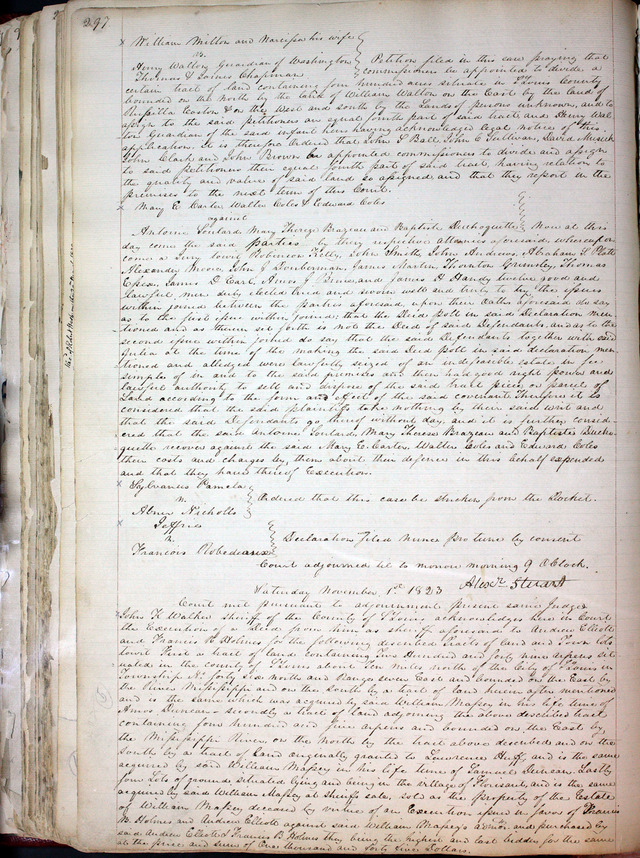 297
William Milton and Narcissa his wife
vs.
Henry Walton, Guardian of Washington
Thomas & Louisa Chapman
Petition filed in this case praying that
commissioners be appointed to divide a
certain tract of land containing four hundred acres situate in St Louis County
bounded on the North by the land of William Walton on the East by the land of
Rufsilla Easton & on the West and South by the Lands of persons unknown, and to
assign to the said petitioners an equal fourth part of said tract and Henry Wal-
ton Guardian of the said infant heirs having acknowledged legal notice of this
application. It is therefore ordered that John S Ball, John C Sullivan, David Musick
John Clark and John Brown be appointed commissioners to divide and assign
to said petitioners their equal fourth part of said tract, having relation to
the quality and value of said land so assigned and that they report in the
premises to the next term of this Court.
Mary E. Carter Walter Coles & Edward Coles
against
Antoine Soulard Mary Therese Brazeau and Baptiste Duchoquette
Now at this
day come the said parties by their respective attornies aforesaid, whereupon
came a Jury towit Robinson Kelly, John Smith John Andrews, Abraham S Platt
Alexander Moore, John J Loverbeman, James Martin, Thornton Grimsley, Thomas
Essex, James D Earl, Amos J Bruce and James H Handy twelve good and
lawful men duly elected tried and sworn well and truly to try the issues
within joined between the parties aforesaid, upon their Oaths aforesaid do say
as to the first issue within joined that the Deed Poll in said Declaration men-
tioned and as therein set forth is not the Deed of said Defendants, and as to the
second issue within joined do say that the said Defendants together with said
Julia at the time of the making the said Deed Poll in said declaration men-
tioned and alledged were lawfully seized of an indefeasible estate in fee
simple of in and to the said premises and then had good right power and
lawful authority to sell and dispose of the said tract piece or parcel of
Land according to the form and effect of the said covenant Therefore it is
considered that the said plaintiffs take nothing by their said writ and
that the said Defendants go thereof without day, and it is further consid-
ered that the said Antoine Soulard, Mary Therese Brazeau and Baptiste Ducho-
quette recover against the said Mary E. Carter, Walter Coles and Edward Coles
their costs and charges by them about their defence in this behalf expended
and that they have thereof Execution.
Sylvanus Pamela
vs.
Abner Nicholls
Ordered that this case be stricken from the Docket.
Jeffries
vs.
Francois Robedeaux
Declaration Filed nunc pro tunc by consent
Court adjourned til to morrow morning 9 O'Clock.
Alexr Stuart
Saturday November 1st 1823
Court met pursuant to adjournment present same Judge
John K Walker Sheriff of the County of St Louis acknowledges here in Court
the Execution of a Deed from him as sheriff aforesaid to Andrew Elliott
and Francis B Holmes for the following described tracts of land and Town lots
towit First a tract of land containing Two Hundred and forty nine arpens sit-
uated in the county of St Louis about Ten miles north of the City of St Louis in
Township No. forty six north and Range seven East and bounded on the East by
the River Mississippi and on the South by a tract of land herein after mentioned
and is the same which was acquired by said William Massey in his life time of
Amos Duncan. secondly a tract of land adjoining the above described tract
containing four hundred and five arpens and bounded on the East by
the Mississippi River on the north by the tract above described and on the
south by a tract of land originally granted to Lawrence and is the same
acquired by said William Massey in his life time of Samuel Duncan. Lastly
four Lots of ground situated lying and being in the village of Florissant, and is the same
acquired by said William Massey at Sheriffs sale, sold as the property of the Estate
of William Massey deceased by virtue of an Execution issued in favor of Francis
B. Holmes and Andrew Elliott against said William Massey's admors. and purchased by
said Andrew Elliott & Francis B. Holmes they being the highest and last bidder for the same
at the price and sum of One thousand and forty five Dollars.